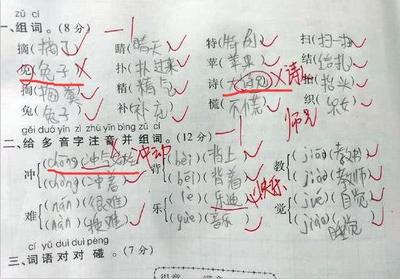 zǔ cí
一、组词。(8分) -1
摘(摘了) 睛(晴天) 特(特别) 扫(扫一扫)
兔(兔子) 扑(扑过来) 苹(苹果) 结(结扎)
掏(掏粪) 精(精气) 诗(大诗包) 诗 抬(抬头)
兔(兔子) 补(补充) 慌(不慌) 织(织女)
师兄
gěi duō yīn zì zhù yīn bìng zǔ cí
二、给多音字注音并组词。(12分) -1
冲 (chōng)(冲与) 冲动 背 (bèi)(背上) 教 (jiāo)(教书)
(chòng)(冲着) (bēi)(背着) (jiào)(教师)
难 (nán)(很难) 乐 (lè)(乐迪) 快乐 觉 (jué)(自觉)
(nàn)(搜难) (yuè)(音乐) (jiào)(睡觉)
cí yǔ duì duì pèng
三、词语对对碰。(7分)